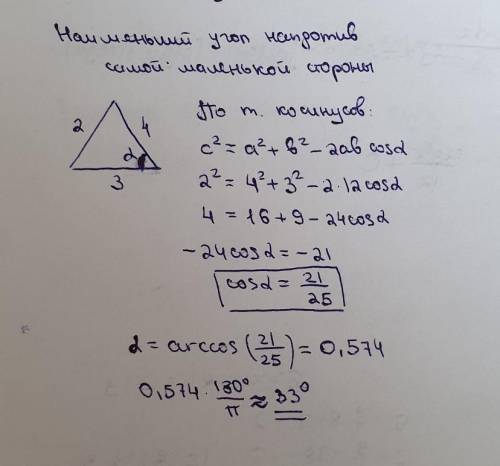 Наименьший угол напротив
самой маленькой стороны
По т. косинусов:
2 4 α 3
c² = a² + b² - 2ab cosα
2² = 4² + 3² - 2·12cosα
4 = 16 + 9 - 24cosα
-24cosα = -21
cosα = 21/25
α = arccos(21/25) = 0,574
0,574 · 180°/π ≈ 33°